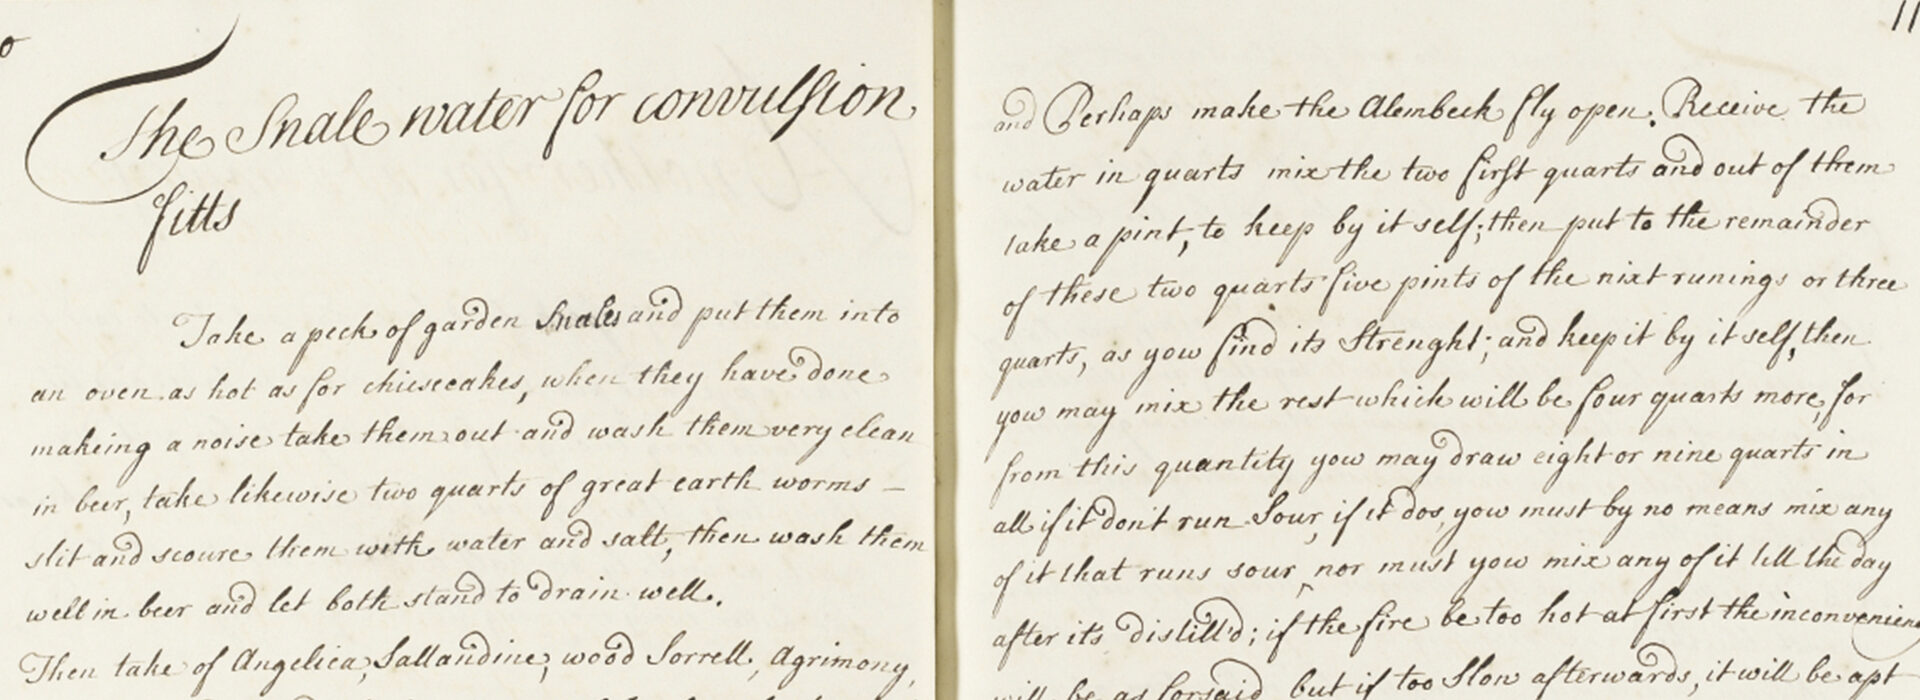 The Snale water for convulsion
fitts
Take a peck of garden Snales and put them into
an oven as hot as for chiesecakes, when they have done
makeing a noise take them out and wash them very clean
in beer, take likewise two quarts of great earth worms –
slit and scoure them with water and salt, then wash them
well in beer and let both stand to drain well.
Then take of Angelica, Sallandine, wood Sorrell, Agrimony,
11
and Perhaps make the Alembeck fly open. Receive the
water in quarts mix the two first quarts and out of them
take a pint, to keep by it self; then put to the remainder
of these two quarts five pints of the nixt runings or three
quarts, as you find its Strenght; and keep it by it self, then
you may mix the rest which will be four quarts more, for
from this quantity you may draw eight or nine quarts in
all if it don't run Sour, if it dos, you must by no means mix any
of it that runs sour, nor must you mix any of it till the day
after its distill'd; if the fire be too hot at first the inconvenienc
will be as forsaid, but if too Slow afterwards, it will be apt